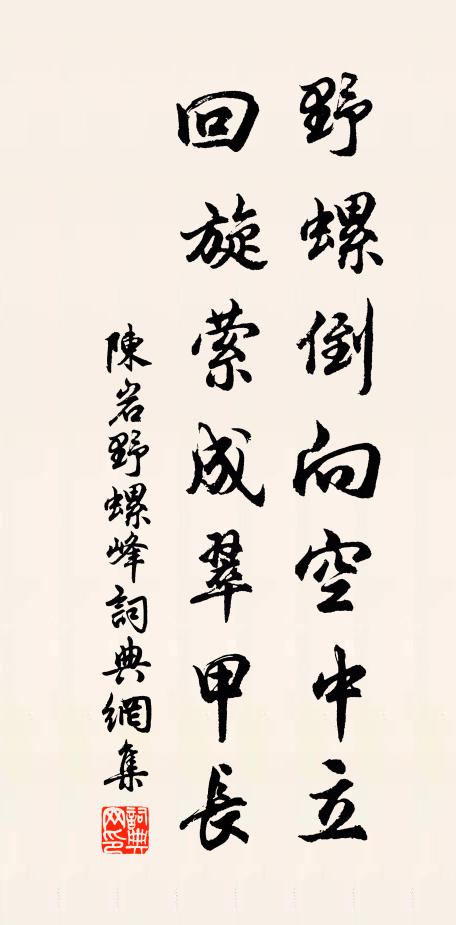 野螺倒向空中立
回旋萦成翠甲長
陳岩野螺峰詞典網集
詞典网印